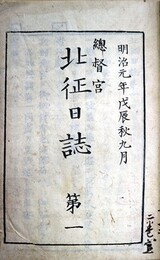 明治元年戊辰秋九月
總督宮
北征日誌
第一